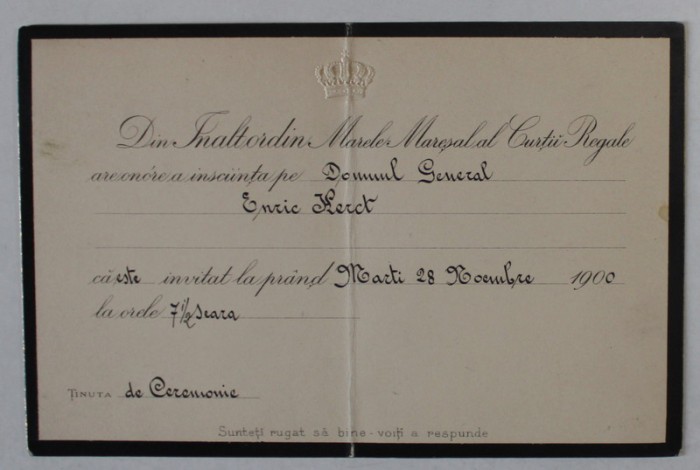 Din Inalt ordin Marele Mareșal al Curții Regale
are onóre a insciința pe Domnul General
Enric Herct
că este invitat la prând Marti 28 Noembre 1900
la orele 7 1/2 seara
ȚINUTA de Ceremonie
Sunteți rugat să bine-voiți a respunde